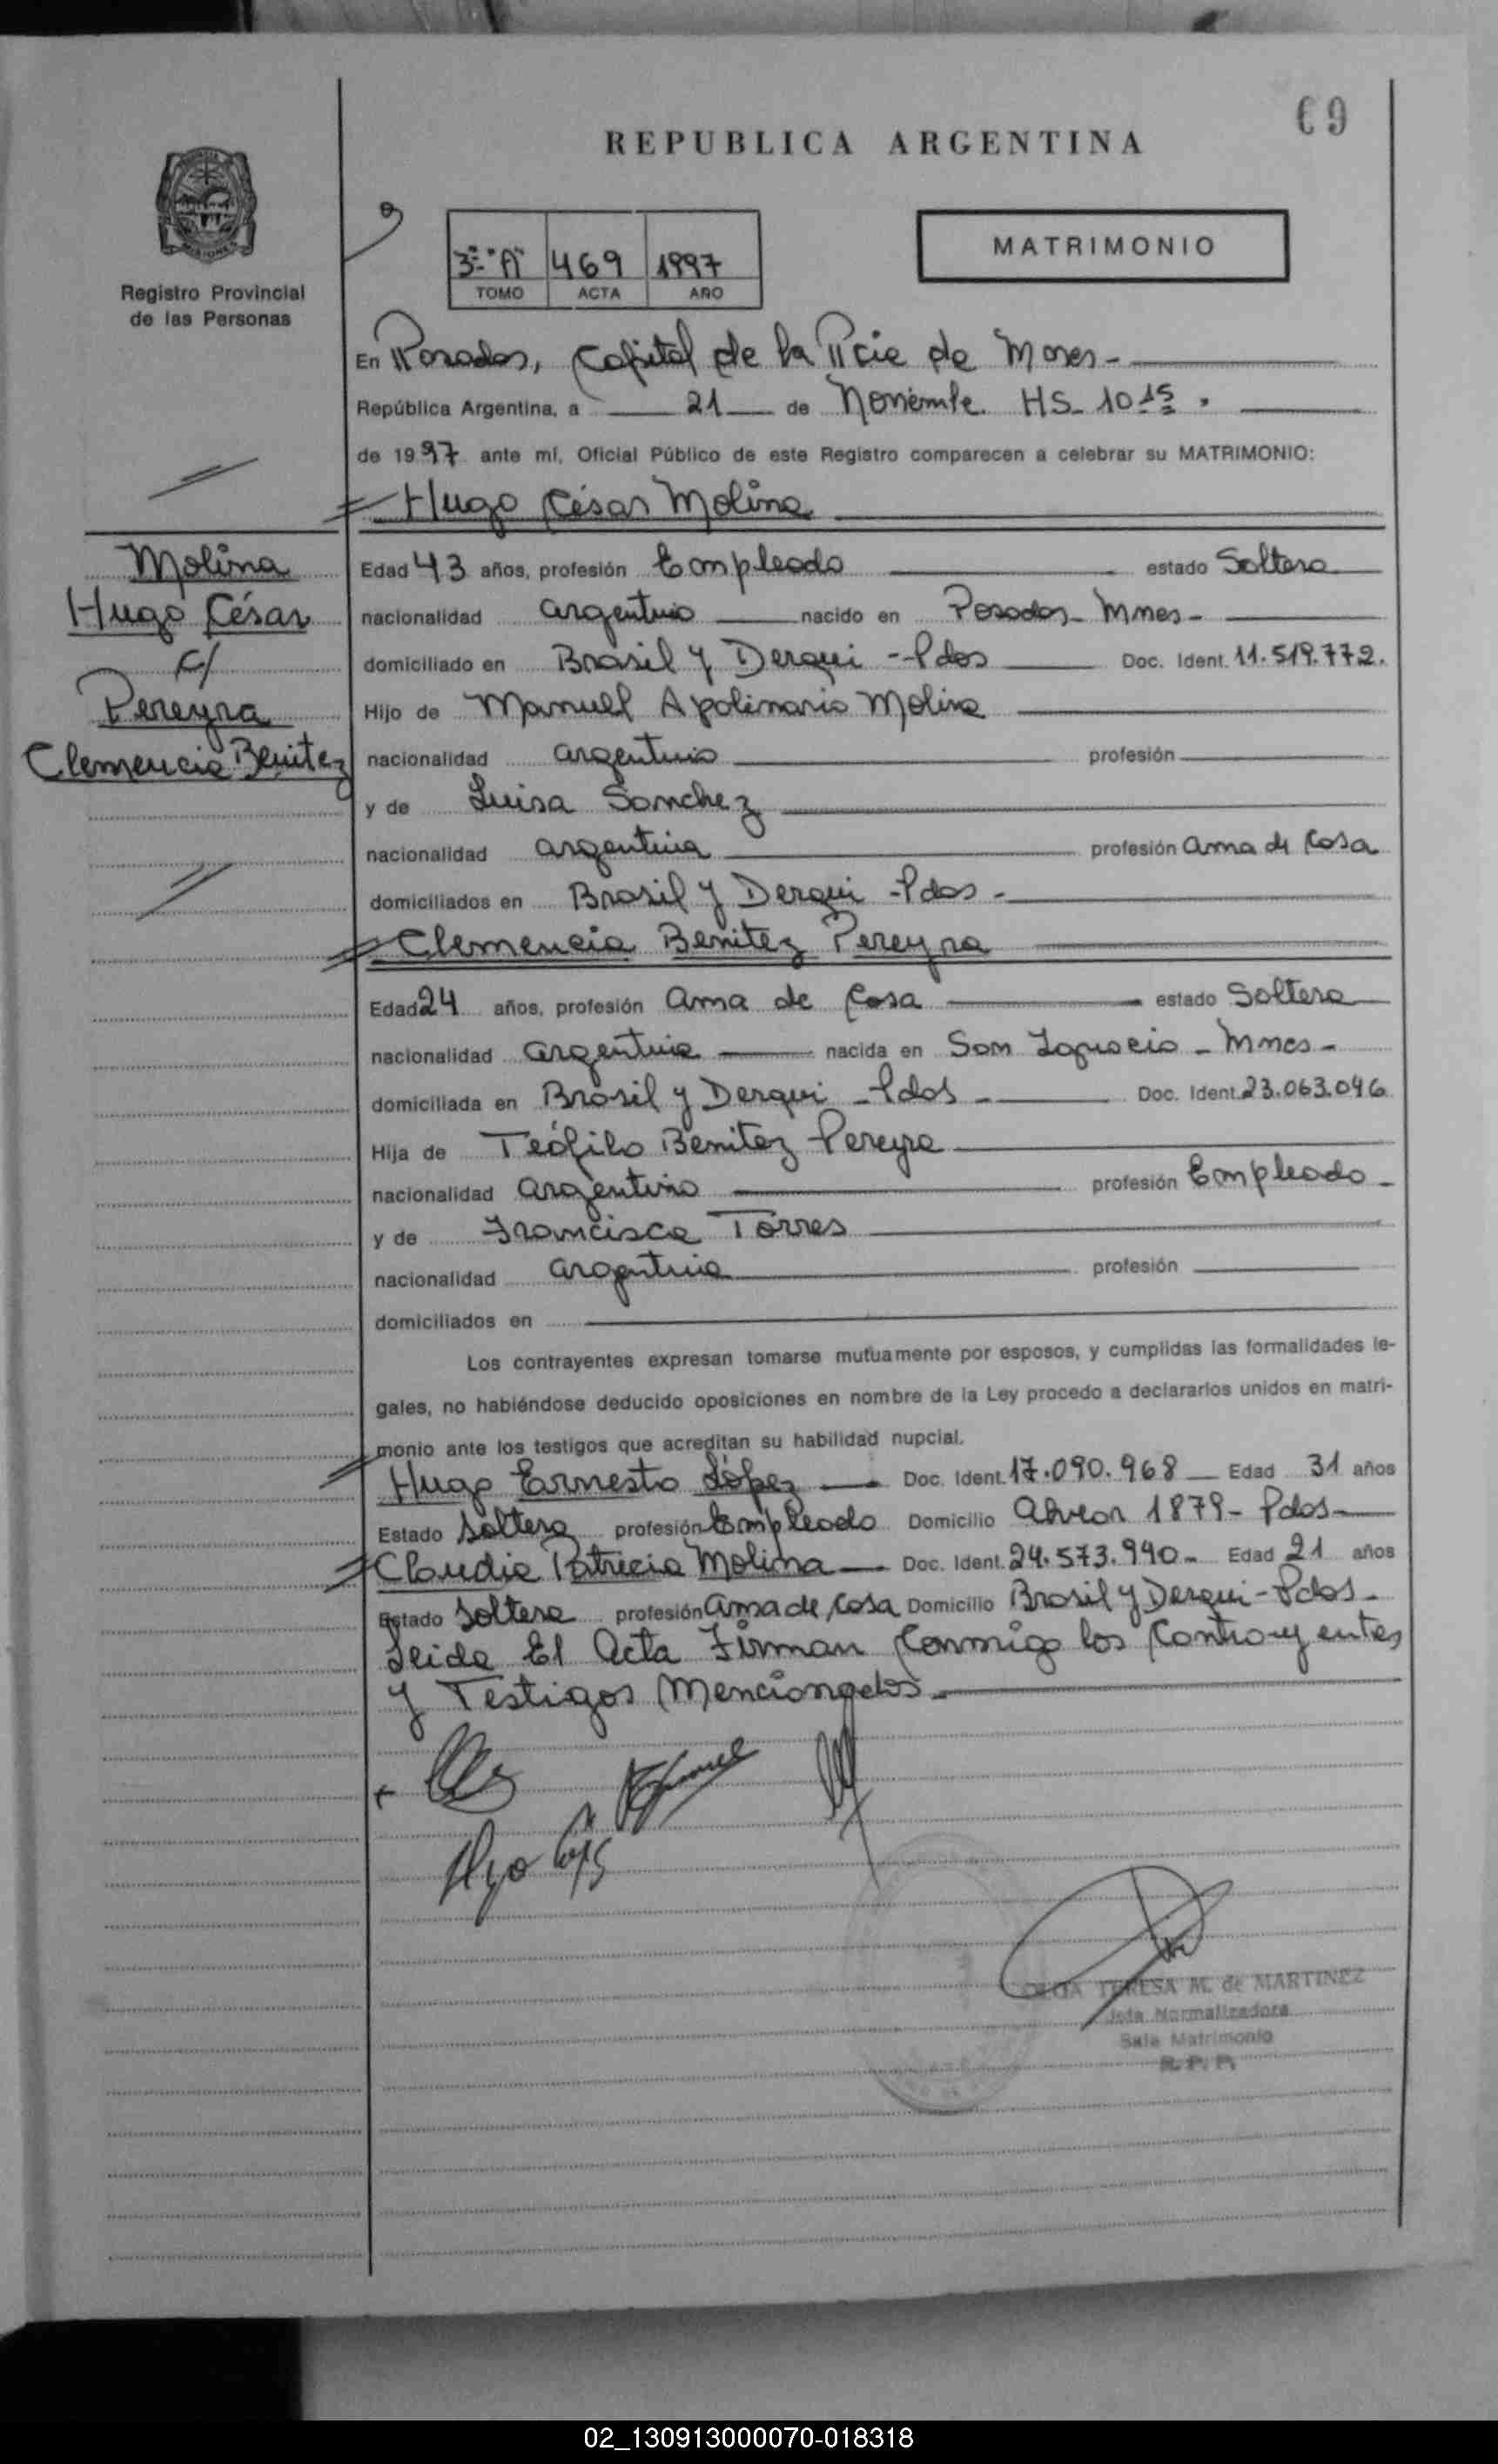 69
REPUBLICA ARGENTINA
3º "A" 469 1997
TOMO ACTA AÑO
MATRIMONIO
Registro Provincial
de las Personas
En Posadas, Capital de la Pcie de Mnes-
República Argentina, a 21 de Noviembe HS- 10 15.
de 1997 ante mí, Oficial Público de este Registro comparecen a celebrar su MATRIMONIO:
Hugo César Molina
Molina
Hugo César
c/
Pereyra
Clemencia Benitez
Edad 43 años, profesión Empleado estado Soltero
nacionalidad argentino nacido en Posadas- Mnes-
domiciliado en Brasil y Derqui -Pdas Doc. Ident. 11.519.772.
Hijo de Manuel Apolinario Molina
nacionalidad argentino profesión
y de Luisa Sanchez
nacionalidad argentina profesión ama de Casa
domiciliados en Brasil y Derqui -Pdas-
Clemencia Benitez Pereyra
Edad 24 años, profesión ama de Casa estado Soltera
nacionalidad argentina nacida en San Ignacio - Mnes-
domiciliada en Brasil y Derqui -Pdas- Doc. Ident. 23.063.046
Hija de Teófilo Benitez Pereyra
nacionalidad argentino profesión Empleado-
y de Francisca Torres
nacionalidad argentina profesión
domiciliados en
Los contrayentes expresan tomarse mutuamente por esposos, y cumplidas las formalidades le-
gales, no habiéndose deducido oposiciones en nombre de la Ley procedo a declararlos unidos en matri-
monio ante los testigos que acreditan su habilidad nupcial.
Hugo Ernesto López Doc. Ident. 17.090.968 Edad 31 años
Estado Soltero profesión Empleado Domicilio Alvear 1879- Pdas-
Claudia Patricia Molina Doc. Ident. 24.573.940- Edad 21 años
Estado Soltera profesión ama de Casa Domicilio Brasil y Derqui-Pdas-
Leida El Acta Firman Conmigo los Contrayentes
y Testigos Mencionados-
TERESA M. de MARTINEZ
Jefa Normalizadora
Sala Matrimonio
R. P. P.
02_130913000070-018318